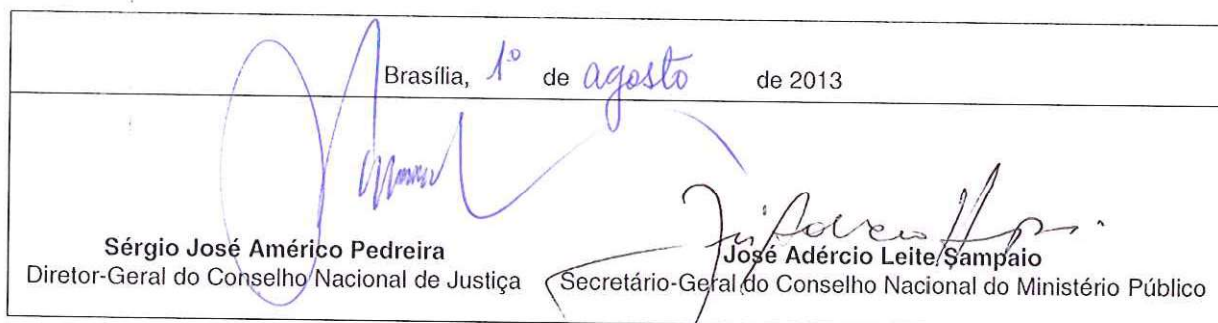 Brasília, 1º de agosto de 2013
Sérgio José Américo Pedreira
Diretor-Geral do Conselho Nacional de Justiça
José Adércio Leite Sampaio
Secretário-Geral do Conselho Nacional do Ministério Público